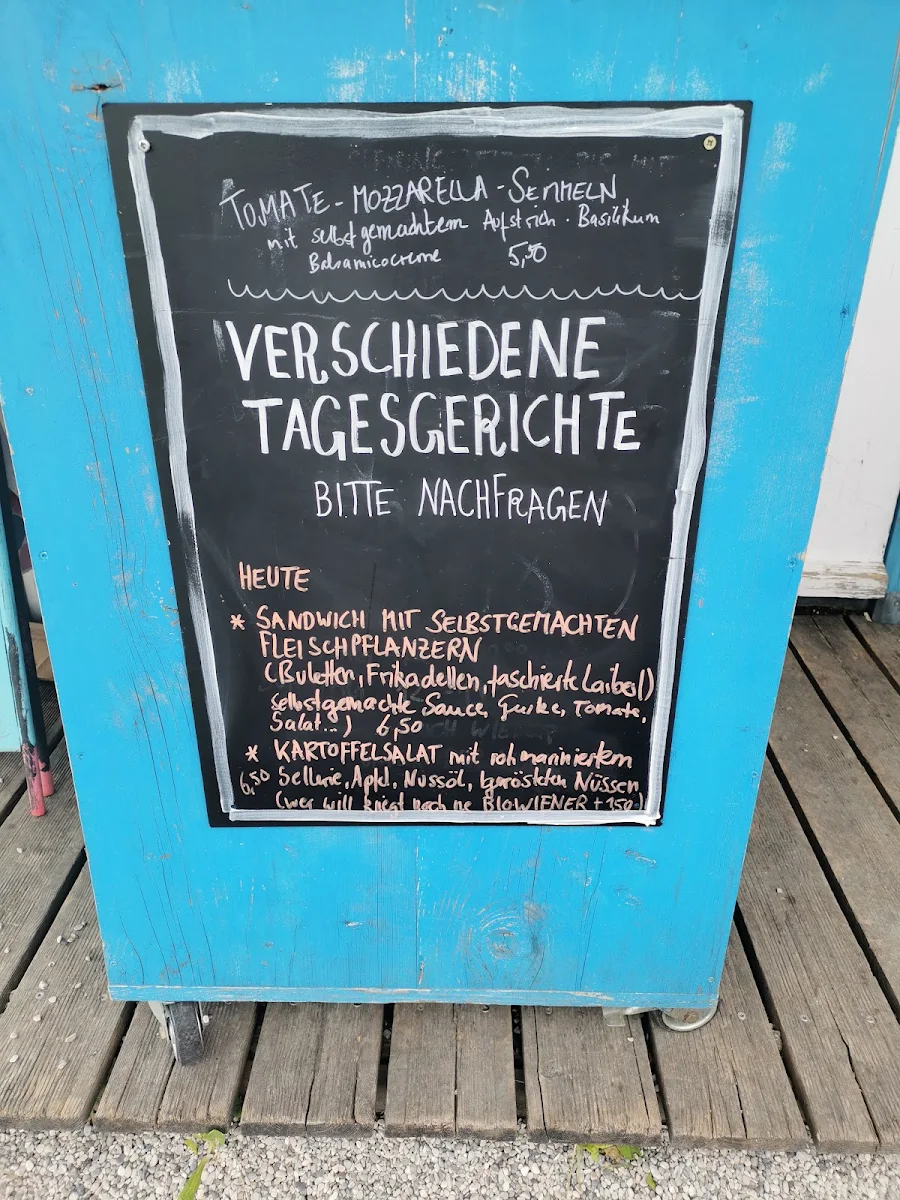 TOMATE-MOZZARELLA-SEMMELN
mit selbstgemachtem Aufstrich · Basilikum
Balsamicocreme 5,50
VERSCHIEDENE
TAGESGERICHTE
BITTE NACHFRAGEN
HEUTE
* SANDWICH MIT SELBSTGEMACHTEN
FLEISCHPFLANZERN
(Buletten, Frikadellen, faschierte Laiberl)
selbstgemachte Sauce, Gurke, Tomate,
Salat...) 6,50
* KARTOFFELSALAT mit roh mariniertem
6,50 Sellerie, Apfel, Nussöl, gerösteten Nüssen
(wer will kriegt noch ne BIOWIENER + 1,50